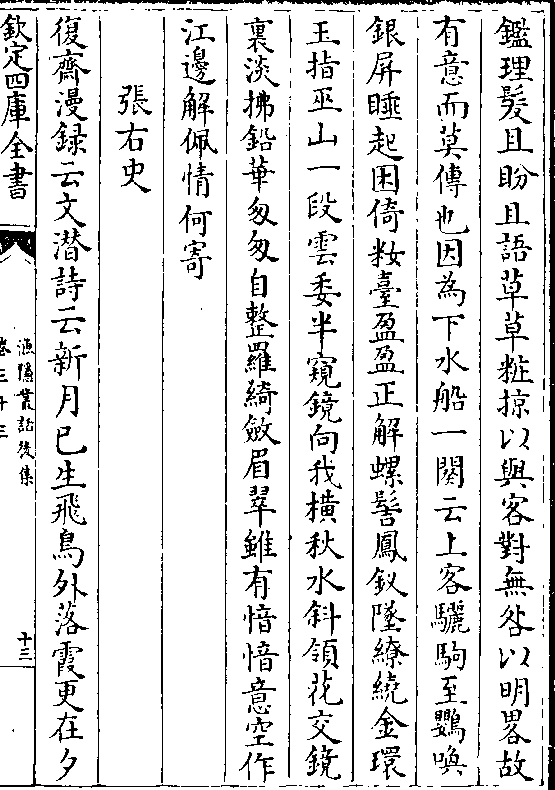 鑑理髮且盼且語草草粧掠以與客對無咎以明畧故
有意而莫傳也因為下水船一闋云上客驪駒至鸚喚
銀屏睡起困倚粧臺盈盈正解螺髻鳳釵墜繚繞金環
玉指巫山一段雲委半窺鏡向我橫秋水斜領花交鏡
裏淡拂鉛華匆匆自整羅綺斂眉翠雖有愔愔意空作
江邊解佩情何寄
張右史
復齋漫録云文潜詩云新月已生飛鳥外落霞更在夕
欽定四庫全書
漁隱叢話後集
卷三十三
十三